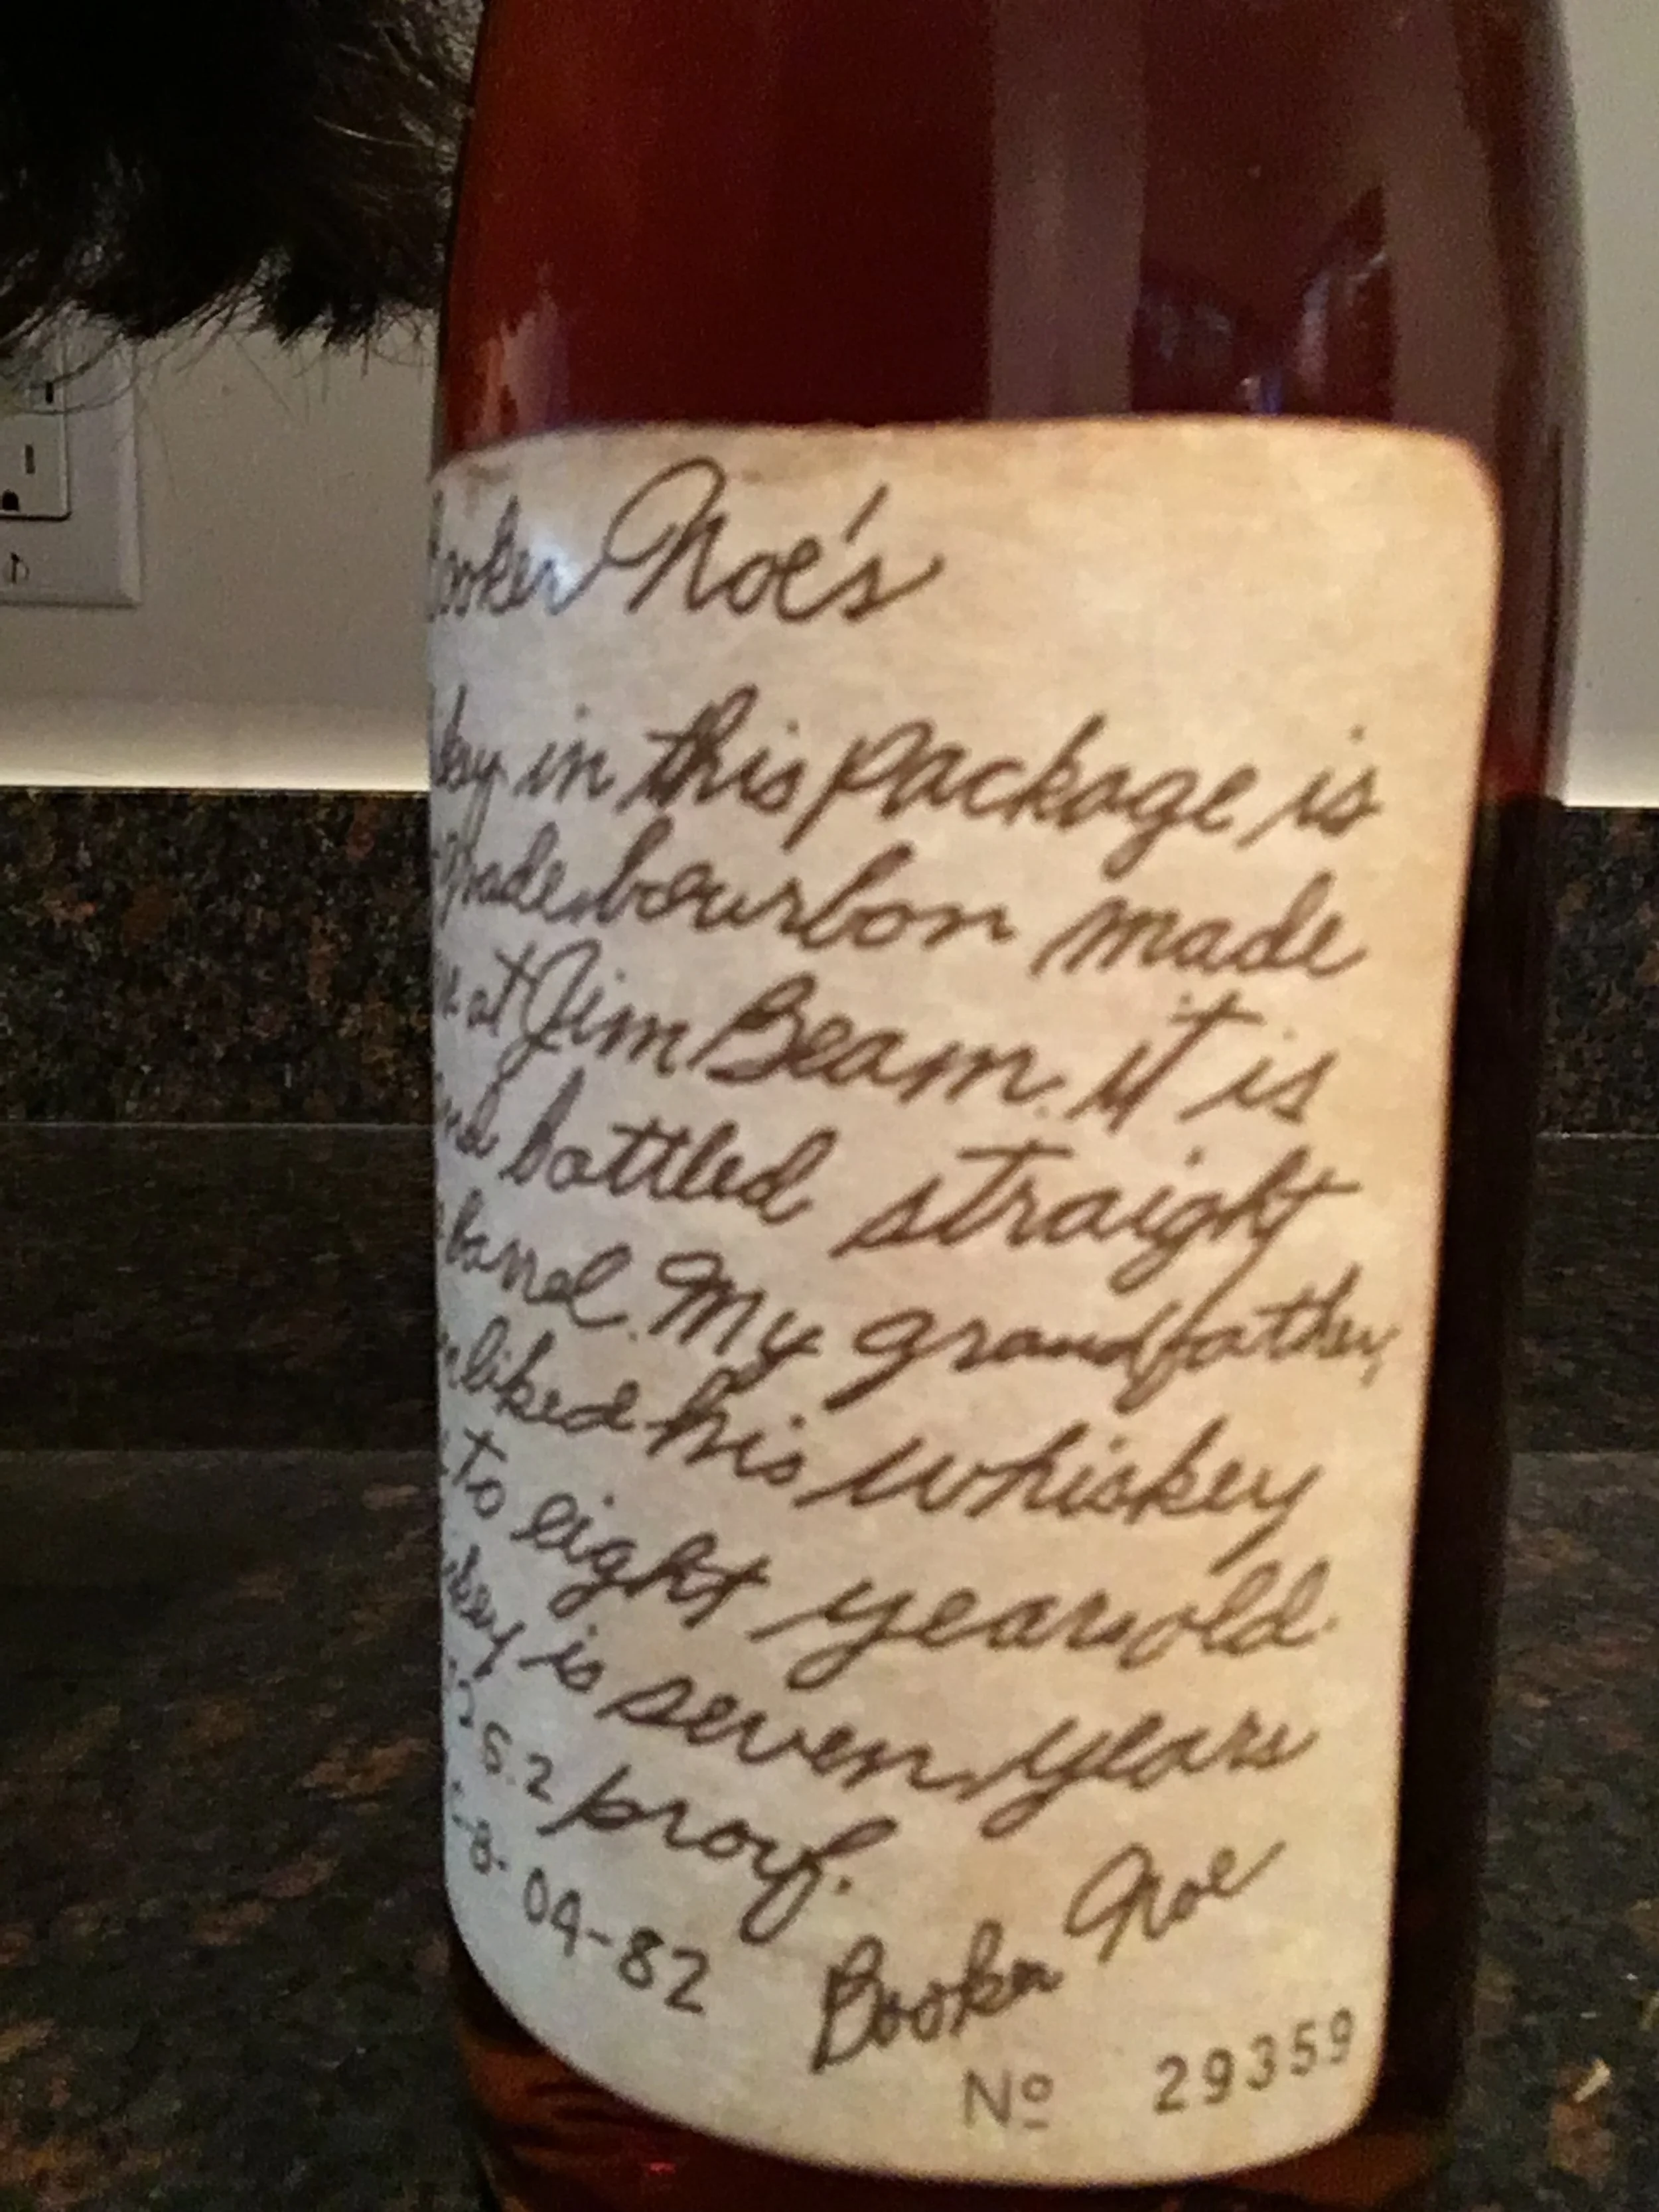 Booker Noe's
in this package is
bourbon made
at Jim Beam. it is
and bottled straight
barrel. My grandfather,
liked his whiskey
to eight years old.
is seven years
5.2 proof.
-8-04-82 Booker Noe
Nº 29359